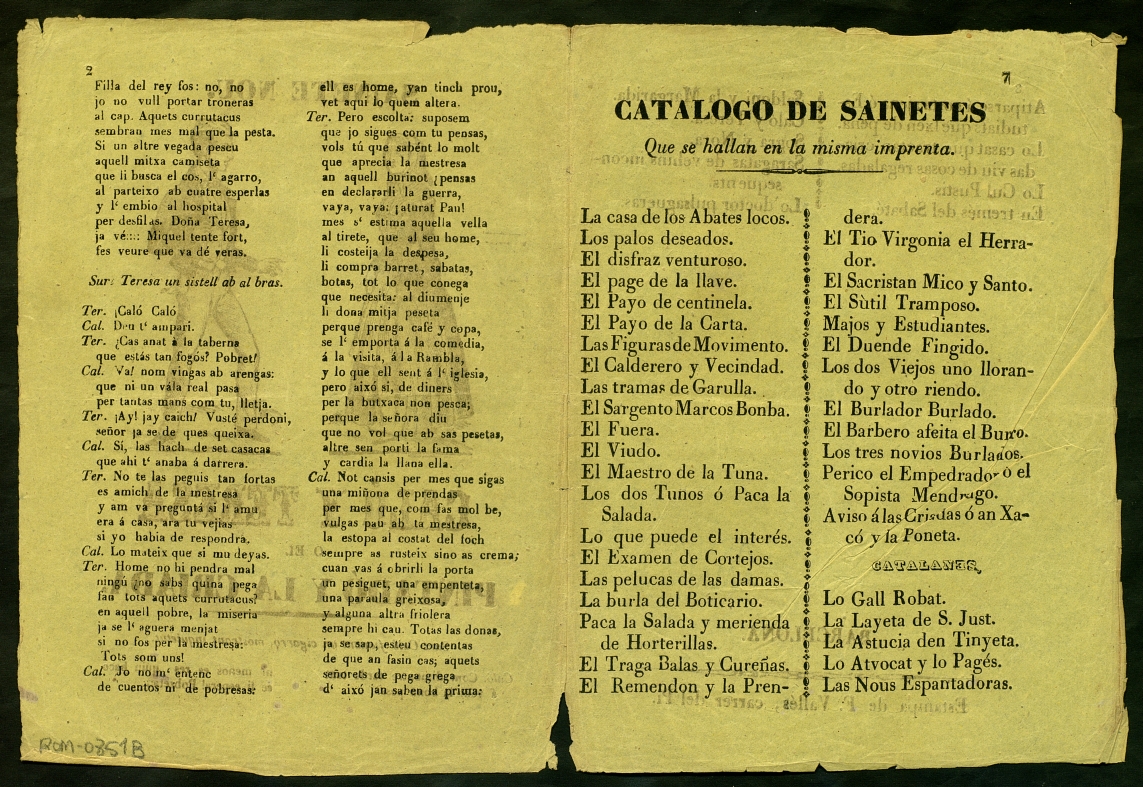 2
Filla del rey fos: no, no
jo no vull portar troneras
al cap. Aquets currutacus
sembran mes mal que la pesta.
Si un altre vegada pescu
aquell mitxa camiseta
que li busca el cos, l‘ agarro,
al parteixo ab cuatre esperlas
y l‘ embio al hospital
per desfilas. Doña Teresa,
ja vé:::: Miquel tente fort,
fes veure que va dé veras.
Surt Teresa un sistell ab al bras.
Ter. ¡Caló Caló
Cal. Deu t‘ ampari.
Ter. ¿Cas anat á la taberna
que estás tan fogós? Pobret!
Cal. Va! nom vingas ab arengas:
que ni un vála real pasa
per tantas mans com tu, lletja.
Ter. ¡Ay! ¡ay caich! Vusté perdoni,
señor ja se de ques queixa.
Cal. Sí, las hach de set casacas
que ahi t‘ anaba á darrera.
Ter. No te las peguis tan fortas
es amich de la mestresa
y am va preguntá si l‘ amu
era á casa, ara tu vejias
si yo habia de respondra.
Cal. Lo mateix que si mu deyas.
Ter. Home no hi pendra mal
ningú ¿no sabs quina pega
fan tots aquets currutacus?
en aquell pobre, la miseria
ja se l‘ aguera menjat
si no fos per la mestresa:
Tots som uns!
Cal. Jo no m‘ entenc
de cuentos ni de pobresas:
ell es home, yan tinch prou,
vet aqui lo quem altera.
Ter. Pero escolta: suposem
que jo sigues com tu pensas,
vols tú que sabént lo molt
que aprecia la mestresa
an aquell burinot ¿pensas
en declararli la guerra,
vaya, vaya: ¡aturat Pau!
mes s‘ estima aquella vella
al tirete, que al seu home,
li costeija la despesa,
li compra barret, sabatas,
botas, tot lo que conega
que necesita: al diumenje
li dona mitja peseta
perque prenga café y copa,
se l‘ emporta á la comedia,
á la visita, á la Rambla,
y lo que ell sent á l‘ iglesia,
pero aixó si, de diners
per la butxaca non pesca;
perque la señora diu
que no vol que ab sas pesetas,
altre sen porti la fama
y cardia la llana ella.
Cal. Not cansis per mes que sigas
una miñona de prendas
per mes que, com fas mol be,
vulgas pau ab ta mestresa,
la estopa al costat del foch
sempre as rusteix sino as crema;
cuan vas á obrirli la porta
un pesiguet, una empenteta,
una paraula greixosa,
y alguna altra friolera
sempre hi cau. Totas las donas,
ja se sap, esteu contentas
de que an fasin cas; aquets
señorets de pega grega
d‘ aixó jan saben la prima:
ROM-0851B
7
CATALOGO DE SAINETES
Que se hallan en la misma imprenta.
La casa de lòs Abates locos.
Los palos deseados.
El disfraz venturoso.
El page de la llave.
El Payo de centinela.
El Payo de la Carta.
Las Figuras de Movimento.
El Calderero y Vecindad.
Las tramas de Garulla.
El Sargento Marcos Bonba.
El Fuera.
El Viudo.
El Maestro de la Tuna.
Los dos Tunos ó Paca la
Salada.
Lo que puede el interés.
El Examen de Cortejos.
Las pelucas de las damas.
La burla del Boticario.
Paca la Salada y merienda
de Horterillas.
El Traga Balas y Cureñas.
El Remendon y la Pren-
dera.
El Tio Virgonia el Herra-
dor.
El Sacristan Mico y Santo.
El Sùtil Tramposo.
Majos y Estudiantes.
El Duende Fingido.
Los dos Viejos uno lloran-
do y otro riendo.
El Burlador Burlado.
El Barbero afeita el Burro.
Los tres novios Burlados.
Perico el Empedrador ó el
Sopista Mendrugo.
Aviso á las Criadas ó an Xa-
có y la Poneta.
CATALANES.
Lo Gall Robat.
La Layeta de S. Just.
La Astucia den Tinyeta.
Lo Atvocat y lo Pagés.
Las Nous Espantadoras.